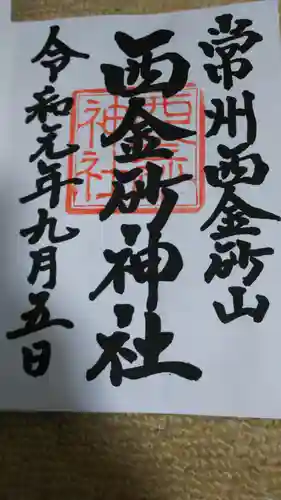 常州西金砂山
西金砂神社
西金砂神社
令和元年九月五日